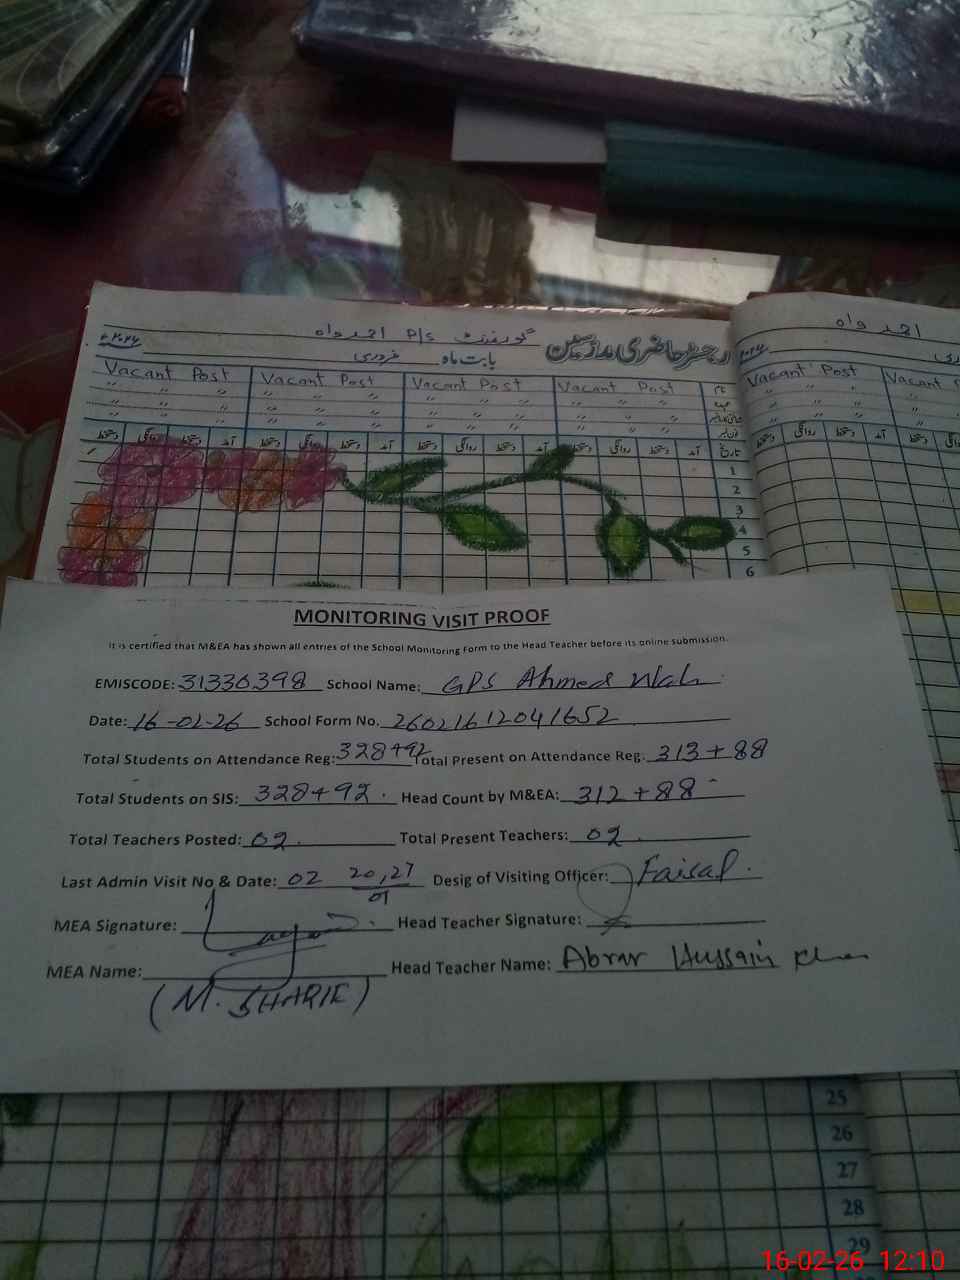 رجسٹر حاضری مدرسین گورنمنٹ P/S احمد واہ
بابت ماہ فروری ۲۰۲۶ء
احمد واہ
۲۰۲۶ء
Vacant Post Vacant Post Vacant Post Vacant Post نام
Vacant Post Vacant
" " " " " " " " عہدہ
" " " " " " " "
" " " " " " " "
تاریخ آمد دستخط روانگی دستخط آمد دستخط روانگی دستخط آمد دستخط روانگی دستخط آمد دستخط روانگی دستخط
دستخط روانگی دستخط آمد دستخط
1
2
3
4
5
6
MONITORING VISIT PROOF
It is certified that M&EA has shown all entries of the School Monitoring Form to the Head Teacher before its online submission.
EMISCODE: 31330398 School Name: GPS Ahmed Wah
Date: 16-02-26 School Form No. 26021612041652
Total Students on Attendance Reg: 328+92 Total Present on Attendance Reg. 313+88
Total Students on SIS: 328+92. Head Count by M&EA: 312+88
Total Teachers Posted: 02. Total Present Teachers: 02.
Last Admin Visit No & Date: 02 20,27/01 Desig of Visiting Officer: Faisal.
MEA Signature: Head Teacher Signature:
MEA Name: Head Teacher Name: Abrar Hussain Khan
(M. SHARIF)
25
26
27
28
29
16-02-26 12:10